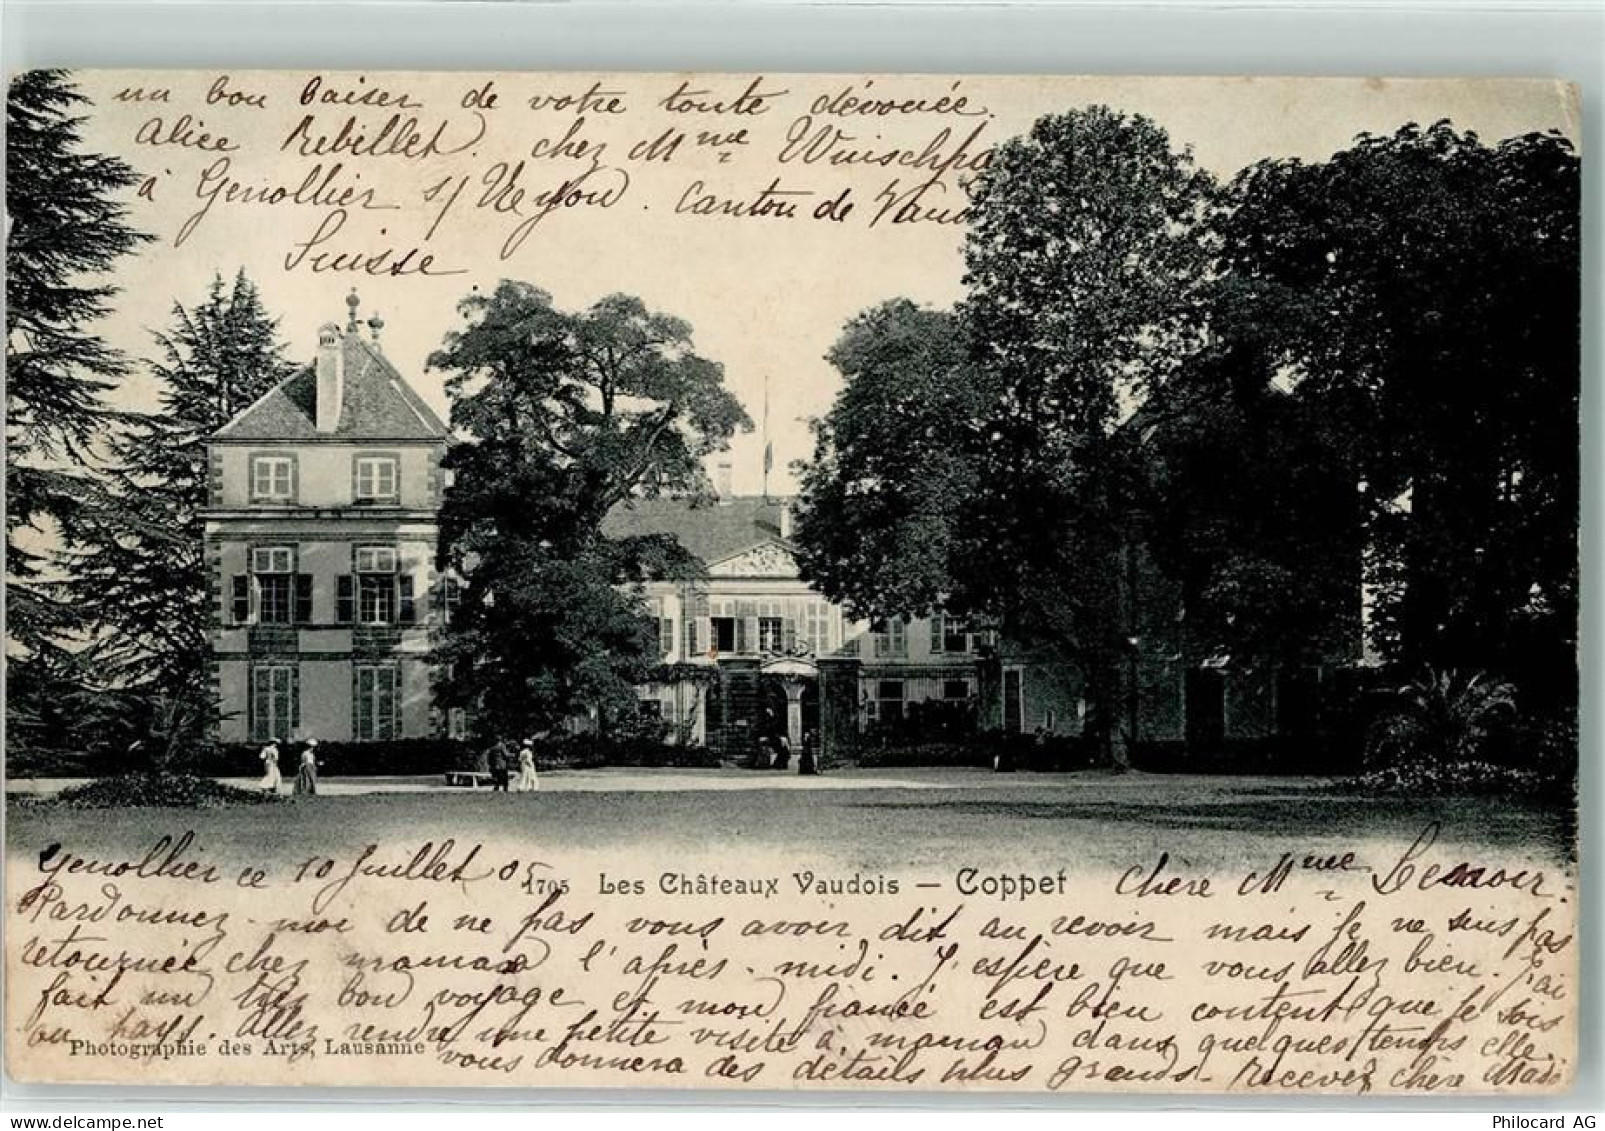 un bon baiser de votre toute dévouée.
Alice Rebillet. chez Mme
à Genollier s/ Nyon. Canton de Vaud
Suisse
Genollier ce 10 Juillet 05
1705 Les Châteaux Vaudois – Coppet
Chère Mme Lenoir.
Pardonnez-moi de ne pas vous avoir dit au revoir mais je ne suis pas
retournée chez maman l'après-midi. J'espère que vous allez bien. J'ai
fait un très bon voyage et mon fiancé est bien content que je sois
au pays. Allez rendre une petite visite à maman dans quelques temps elle
Photographie des Arts, Lausanne
vous donnera des détails plus grands. Recevez chère Mada
Philocard AG